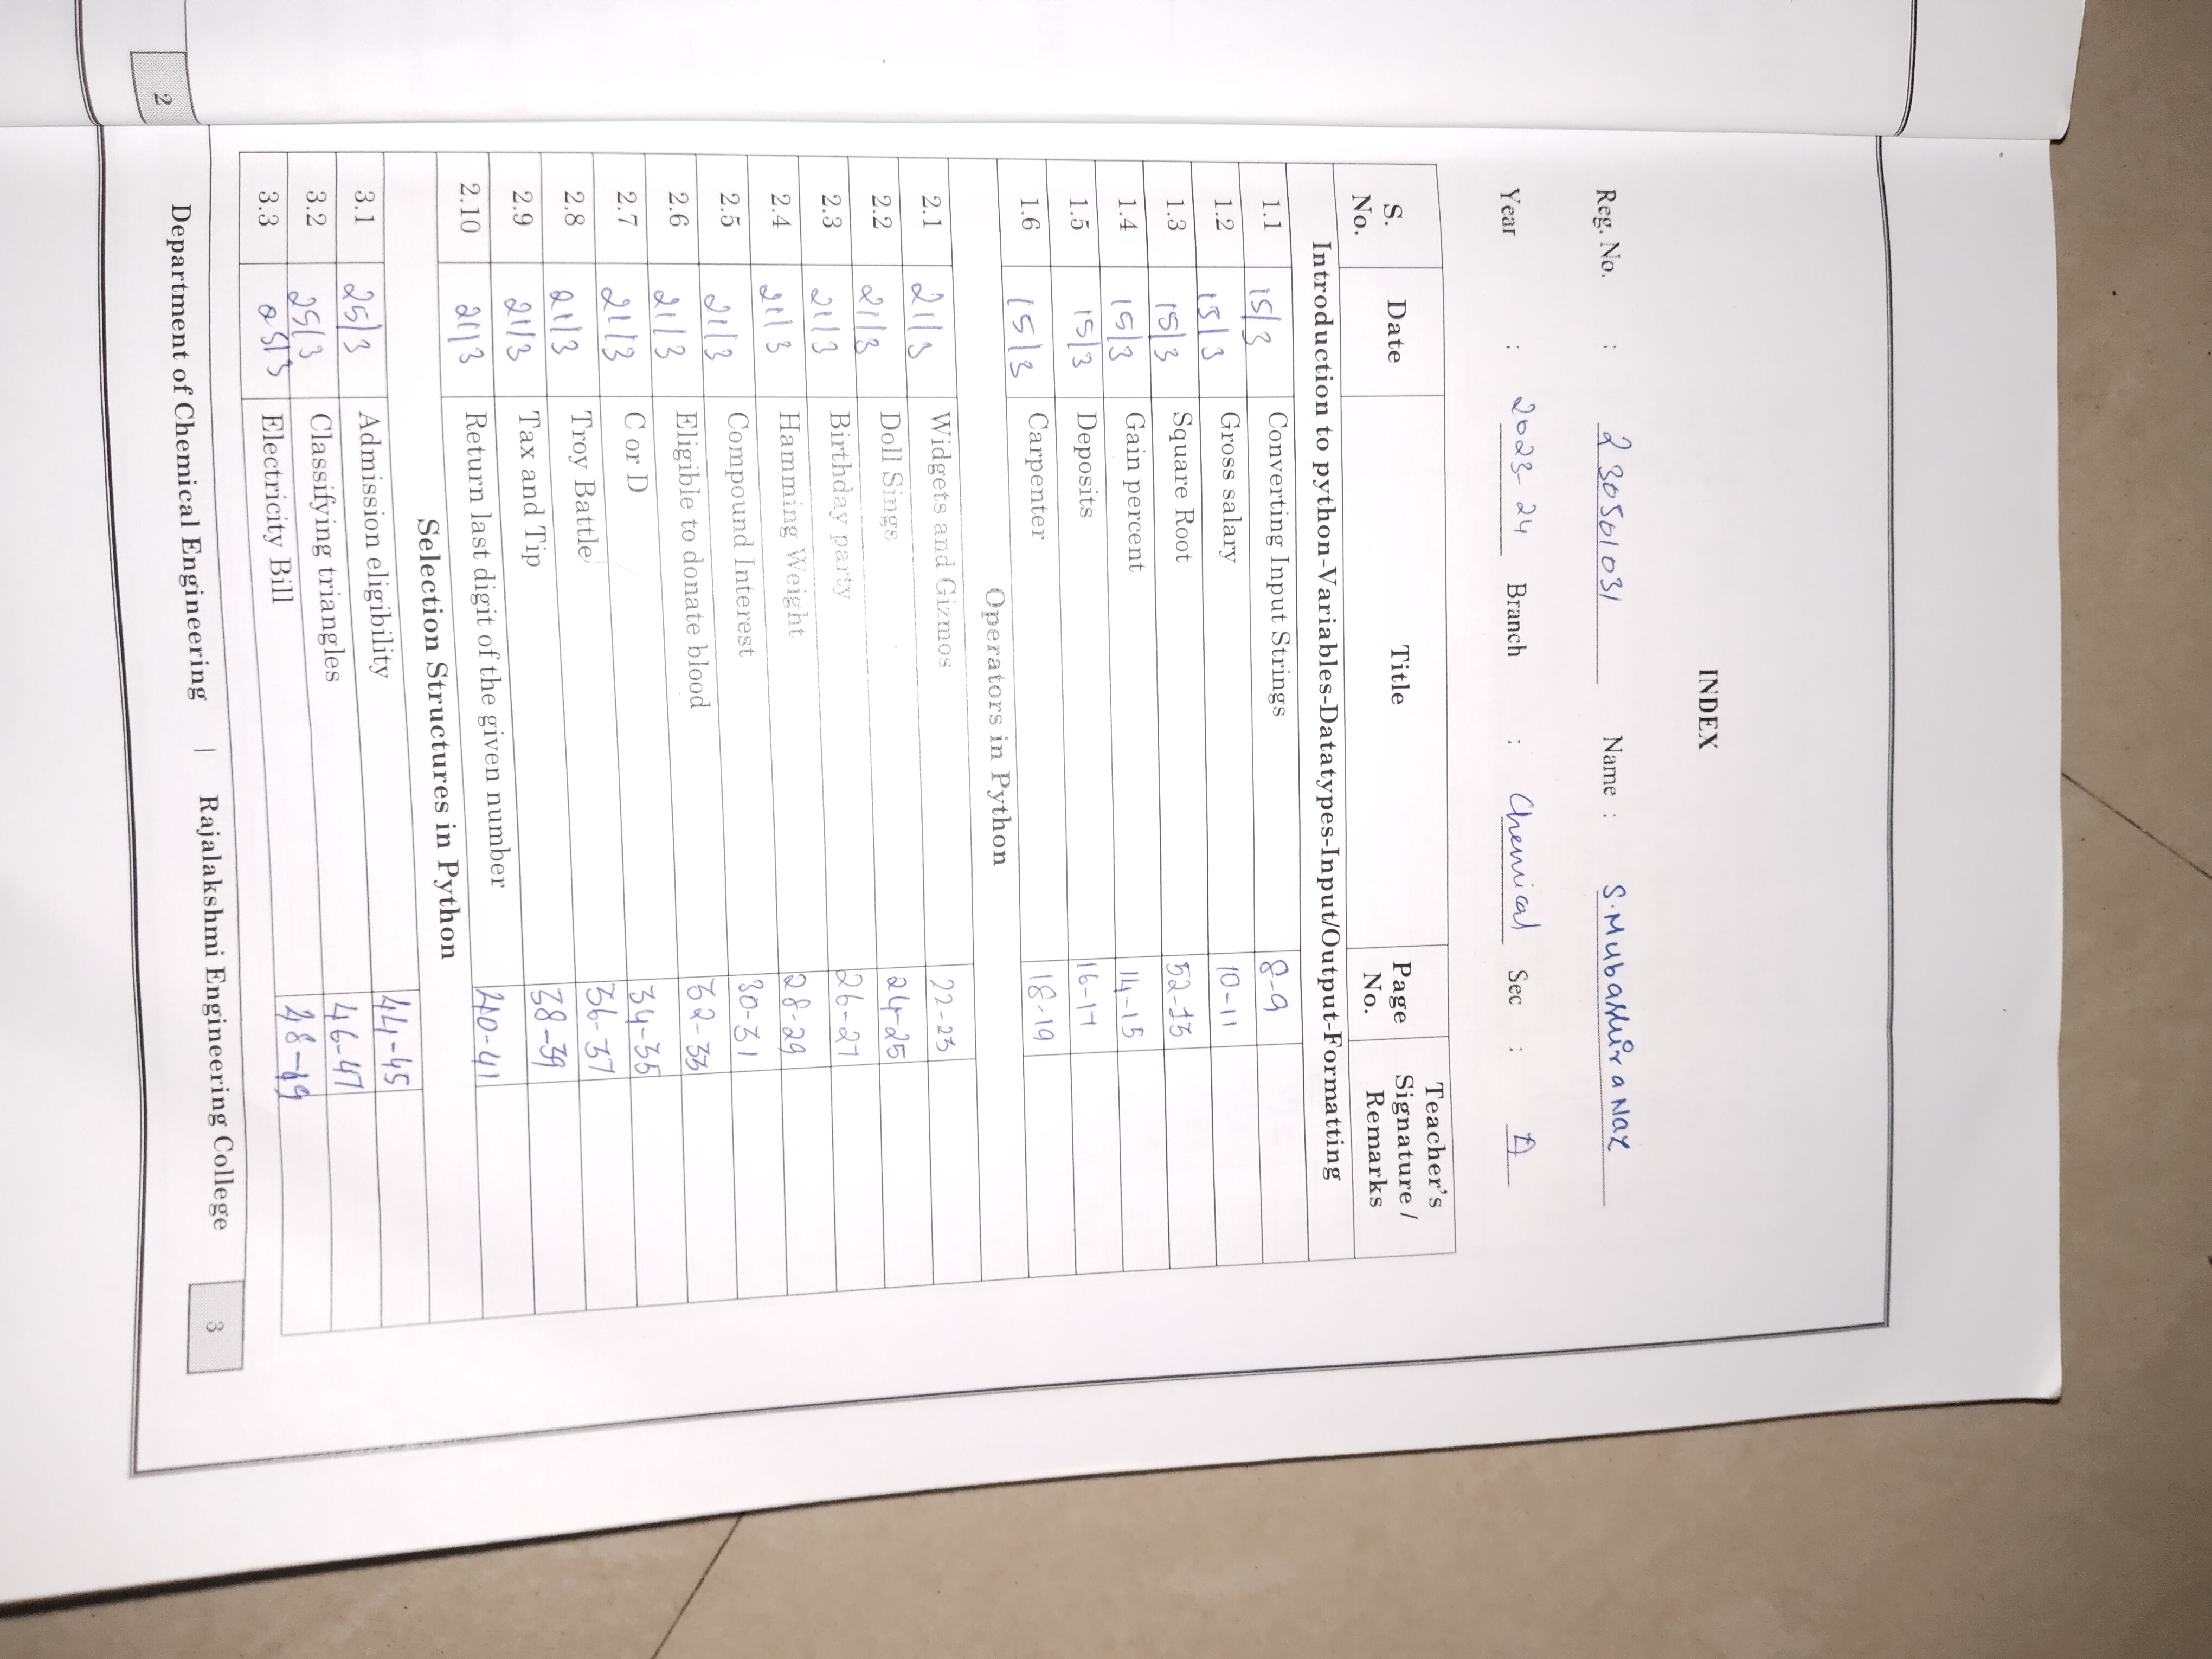 2
INDEX
Reg. No. : 230501031 Name : S.Mubashira Naz
Year : 2023-24 Branch : Chemical Sec : A
S. No. Date Title Page No. Teacher's Signature / Remarks
Introduction to python-Variables-Datatypes-Input/Output-Formatting
1.1 15/3 Converting Input Strings 8-9
1.2 15/3 Gross salary 10-11
1.3 15/3 Square Root
1.4 15/3 Gain percent 14-15
1.5 15/3 Deposits 16-17
1.6 15/3 Carpenter 18-19
Operators in Python
2.1 21/3 Widgets and Gizmos 22-23
2.2 21/3 Doll Sings 24-25
2.3 21/3 Birthday party 26-27
2.4 21/3 Hamming Weight 28-29
2.5 21/3 Compound Interest 30-31
2.6 21/3 Eligible to donate blood 32-33
2.7 21/3 C or D 34-35
2.8 21/3 Troy Battle 36-37
2.9 21/3 Tax and Tip 38-39
2.10 21/3 Return last digit of the given number 40-41
Selection Structures in Python
3.1 25/3 Admission eligibility 44-45
3.2 25/3 Classifying triangles 46-47
3.3 25/3 Electricity Bill 48-49
Department of Chemical Engineering | Rajalakshmi Engineering College 3